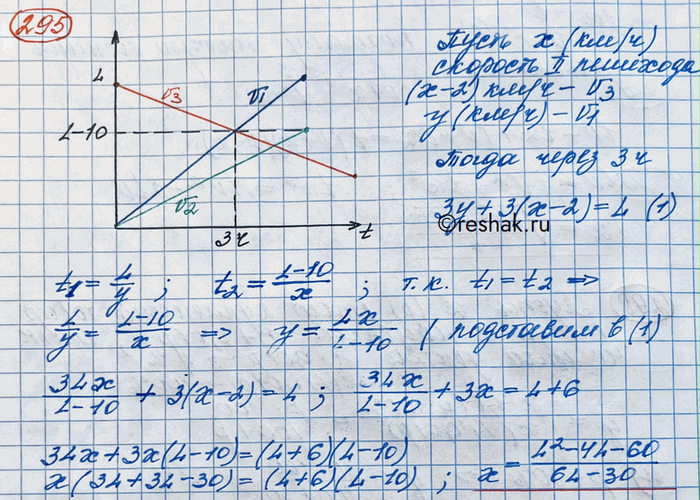 295
L
L-10
v3
v1
v2
3ч
t
Пусть x (км/ч)
скорость II пешехода
(x-2) км/ч - v3
y (км/ч) - v1
Тогда через 3ч
3y + 3(x-2) = L (1)
©reshak.ru
t1 = L/y ; t2 = (L-10)/x ; т.к. t1 = t2 =>
L/y = (L-10)/x => y = Lx/(L-10) ( подставим в (1)
3Lx/(L-10) + 3(x-2) = L ; 3Lx/(L-10) + 3x = L+6
3Lx + 3x(L-10) = (L+6)(L-10)
x(3L+3L-30) = (L+6)(L-10) ; x = (L²-4L-60)/(6L-30)